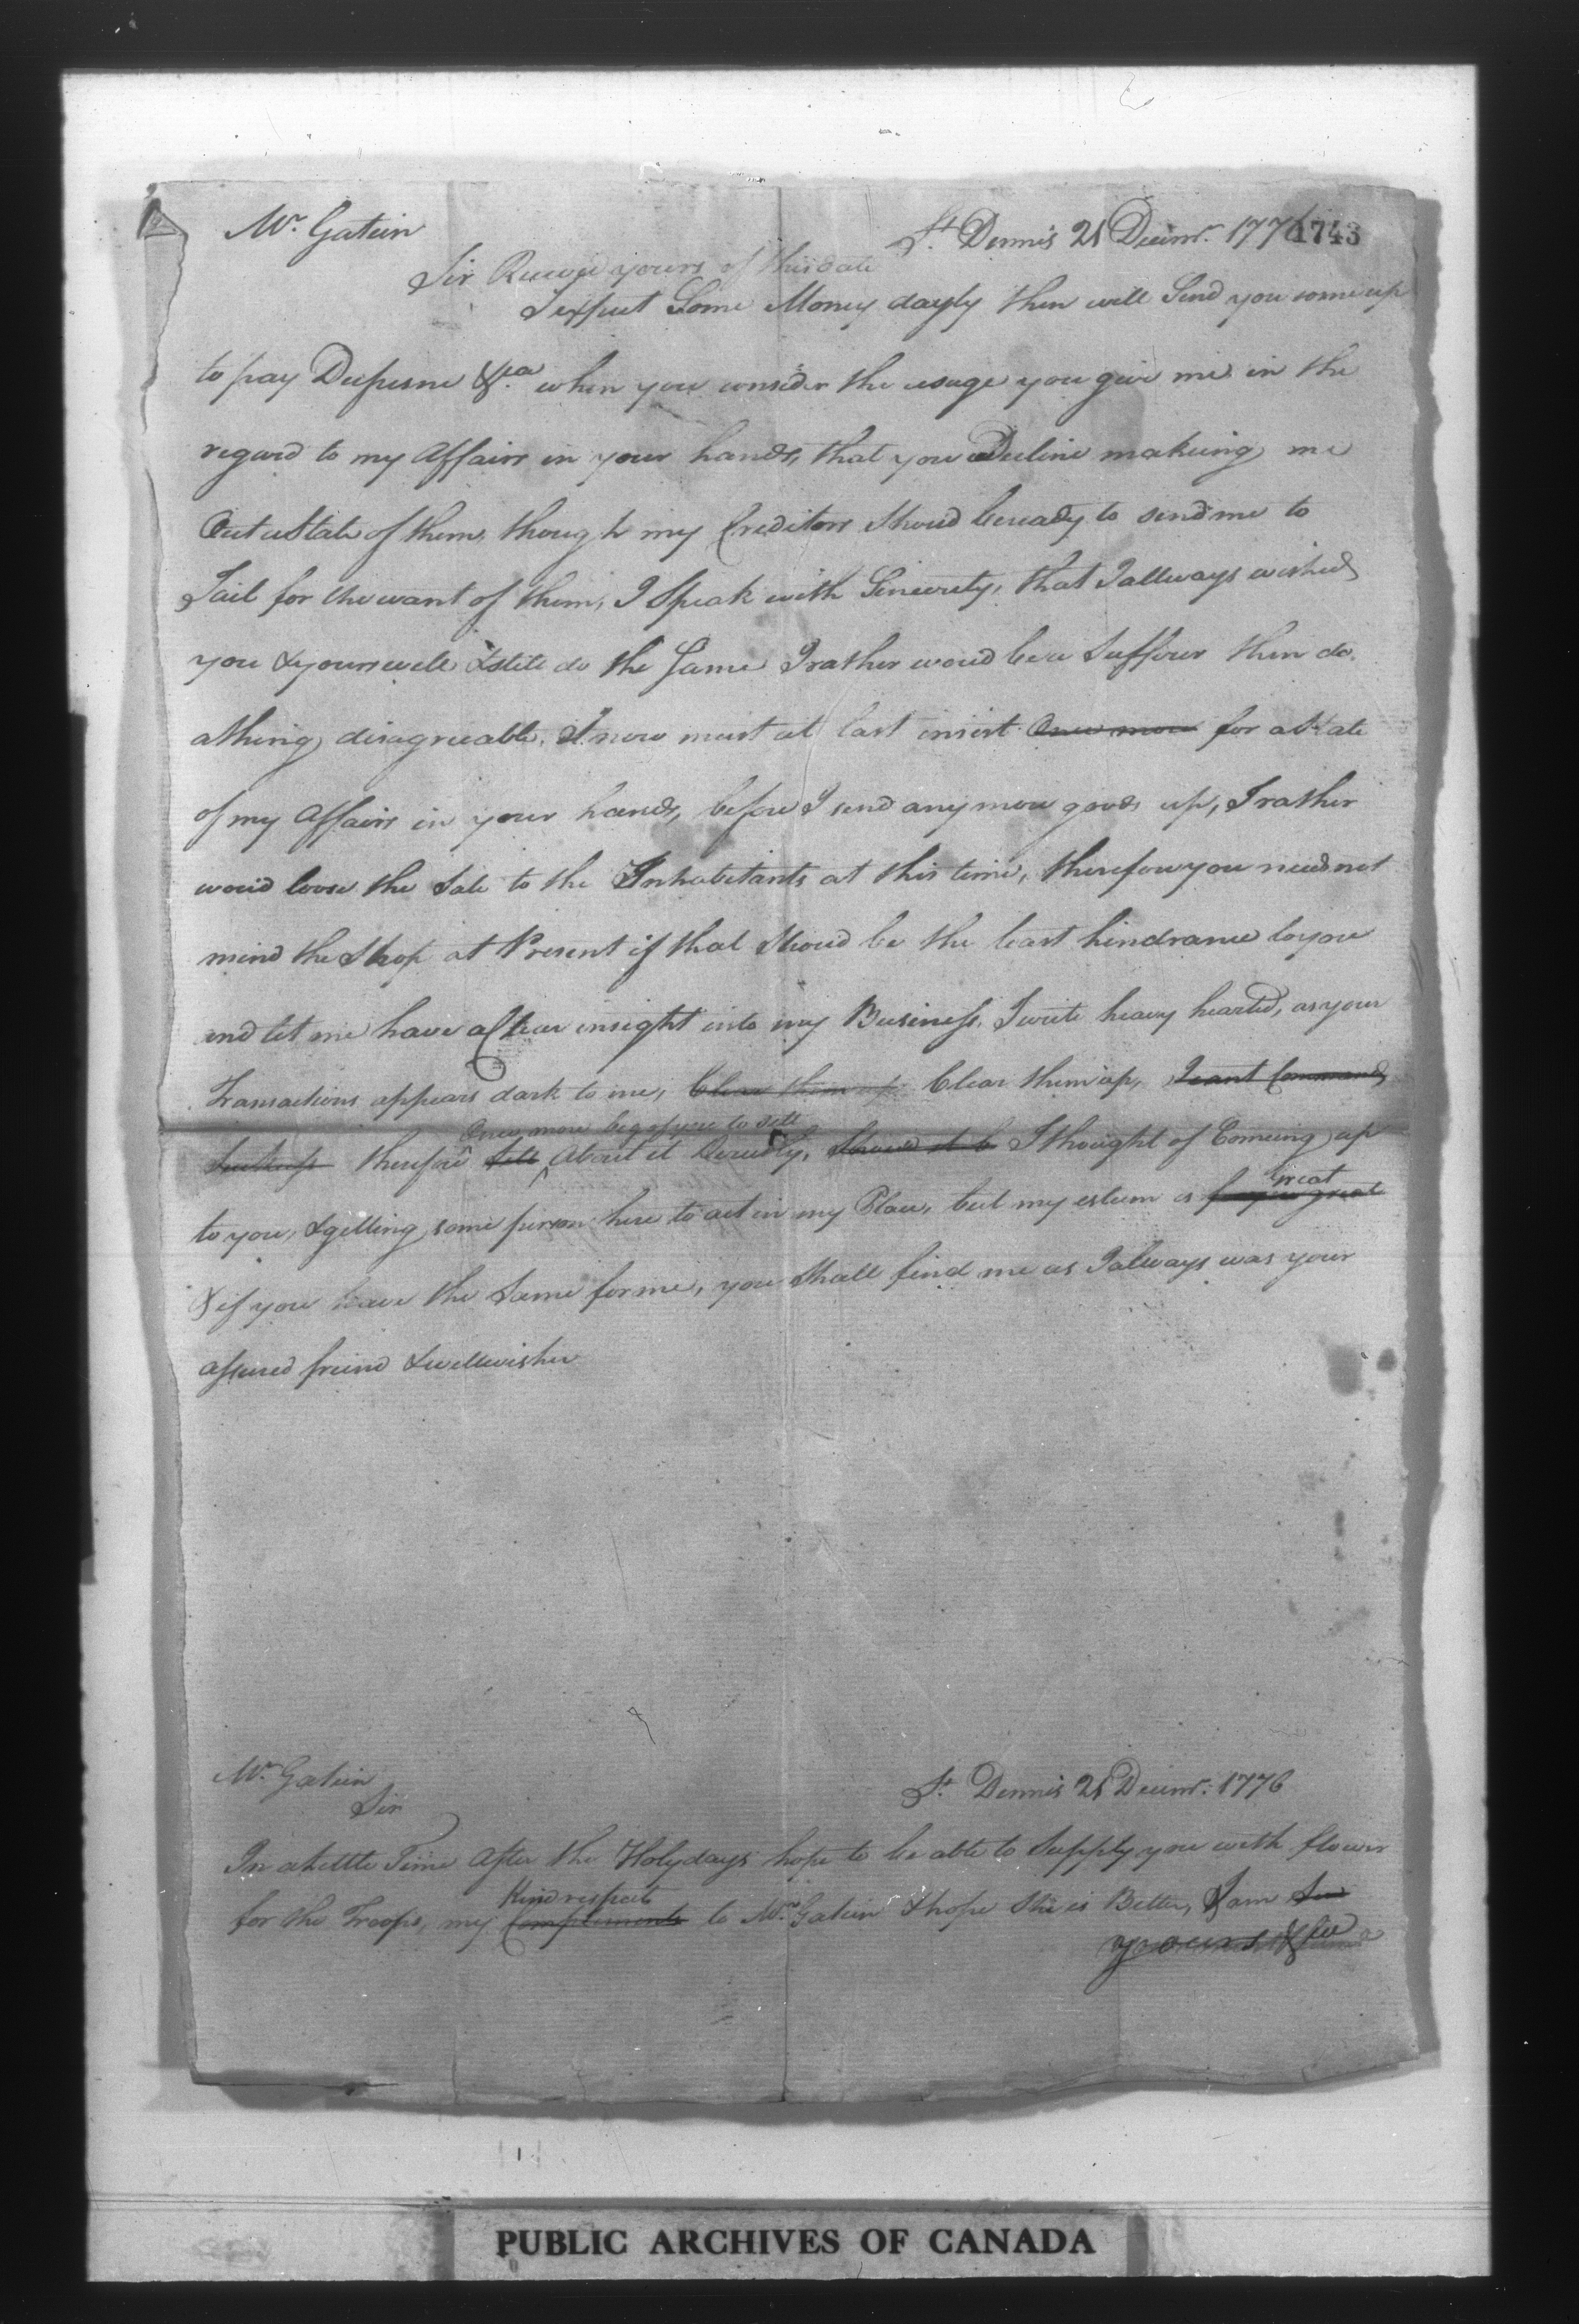 Mr. Gatien St. Dennis 21 Decemr. 1776 1743
Sir Receivd yours of this date
I expect Some Money dayly then will Send you some up
to pay Dufresne &ca when you consider the usage you give me in the
regard to my Affairs in your hands, that you Decline makeing me
Out a State of them, though my Creditors Shoud be ready to send me to
Jail for the want of them, I Speak with Sincerety, that I allways wished
you & yours well & still do the Same I rather woud be a Sufferer then do
a thing disagreeable. I now must at last insist Once more for a State
of my Affairs in your hands, before I send any more goods up, I rather
woud loose the Sale to the Inhabitants at this time, therefore you need not
mind the Shop at Present if that Shoud be the least hindrance to you
and let me have a Clear insight into my Business, I write heavy hearted, as your
Transactions appears dark to me, Clear them up Clear them up, I cant Command
Once more beg of you to sett
therefore sett About it Derectly, Shoud it b I thought of Comeing up
Great
to you, & getting some person here to act in my Place, but my esteem is for you great
& if you have the Same for me, you Shall find me as I always was your
assured freind & wellwisher
Mr. Gatien St. Dennis 21 Decemr. 1776
Sir
In a Little Time After the Holydays hope to be able to Supply you with flower
Kind respects
for the Troops, my Complements to Mrs. Gatien & hope She is Better, I am Sir
yours &ca
PUBLIC ARCHIVES OF CANADA